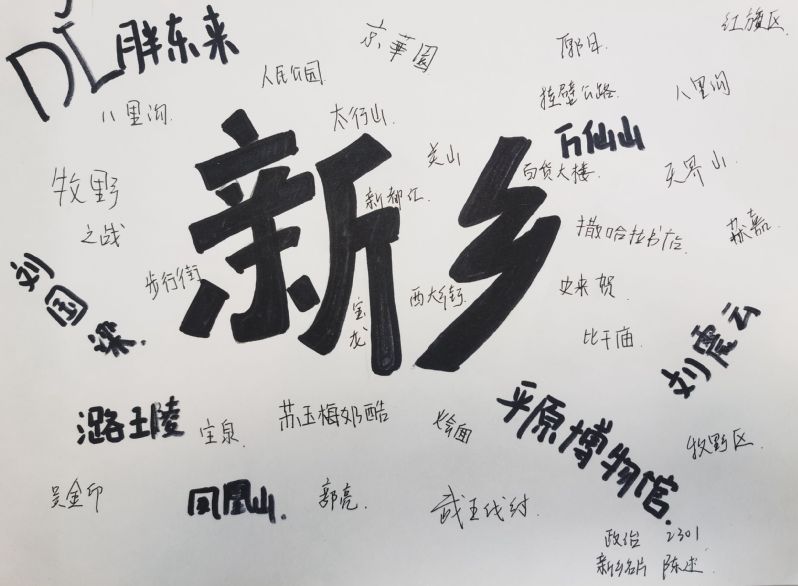 DL胖东来
京華園
郭日
红旗区
人民公园
八里沟
太行山
挂壁公路
八里沟
万仙山
关山
百货大楼
天界山
牧野
之战
新都汇
新乡
撒哈拉书店
苏嘉
刘国梁
步行街
宝龙
西大街
史来贺
比干庙
刘震云
潞王陵
宝泉
苏玉梅奶酪
烩面
平原博物馆
牧野区
吴金印
凤凰山
郭亮
武王伐纣
政治 2301
新乡名片 陈述